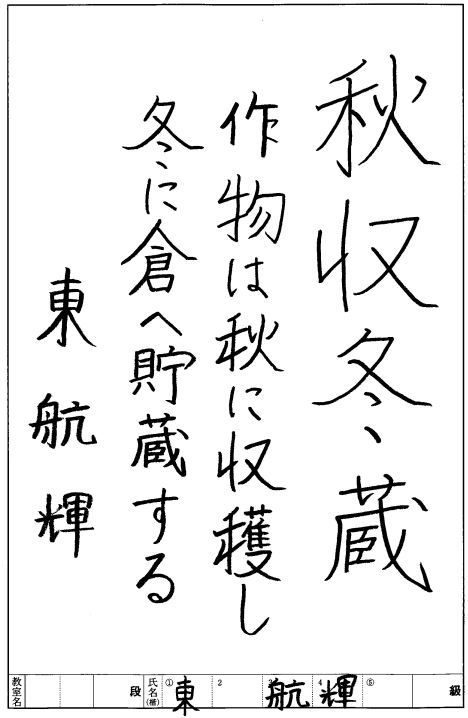 秋収冬蔵
作物は秋に収穫し
冬に倉へ貯蔵する
東航輝
級
氏名(楷) ① 東 2 3 航 4 輝 ⑤
段
教室名